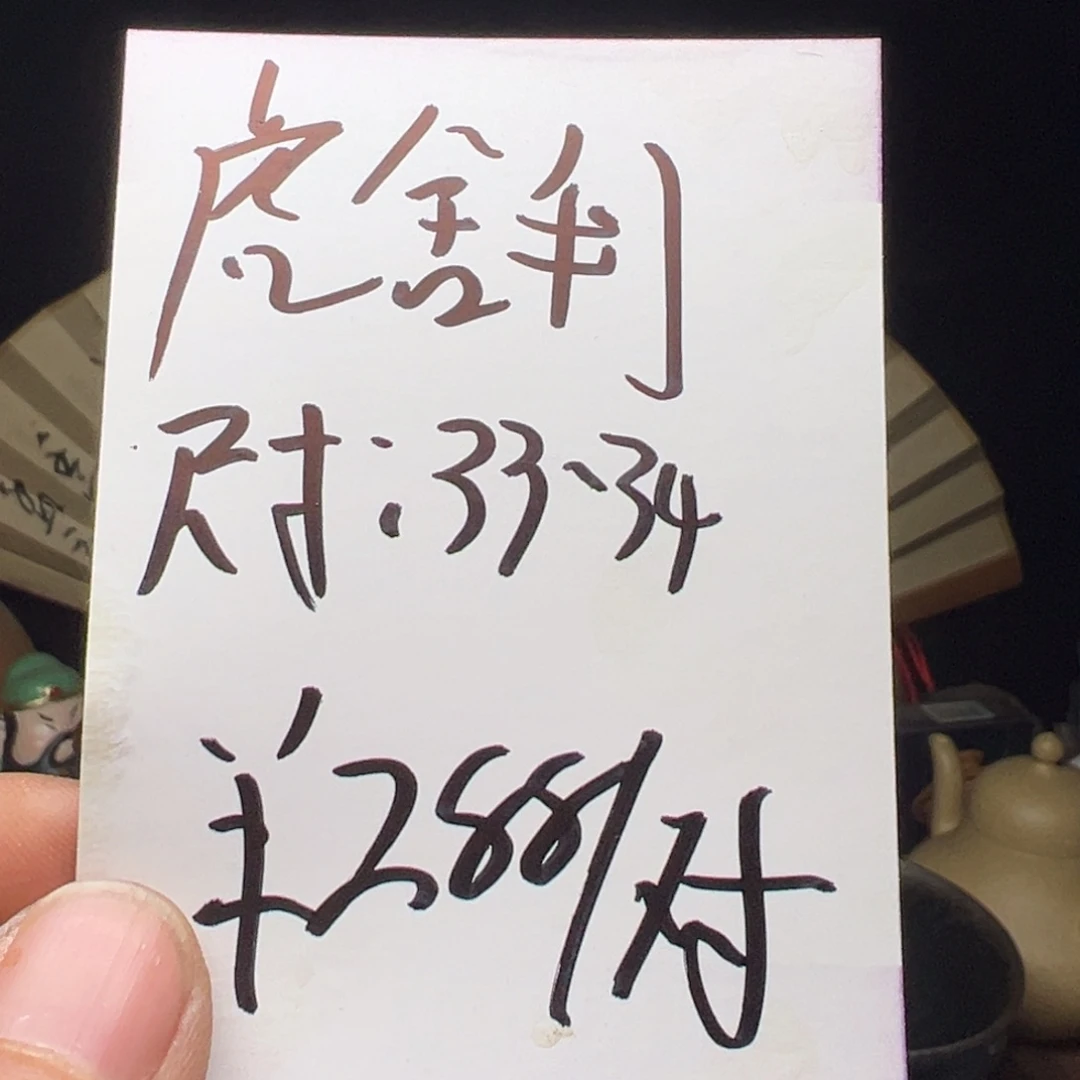 虎舍利
尺寸:33、34
¥288/对